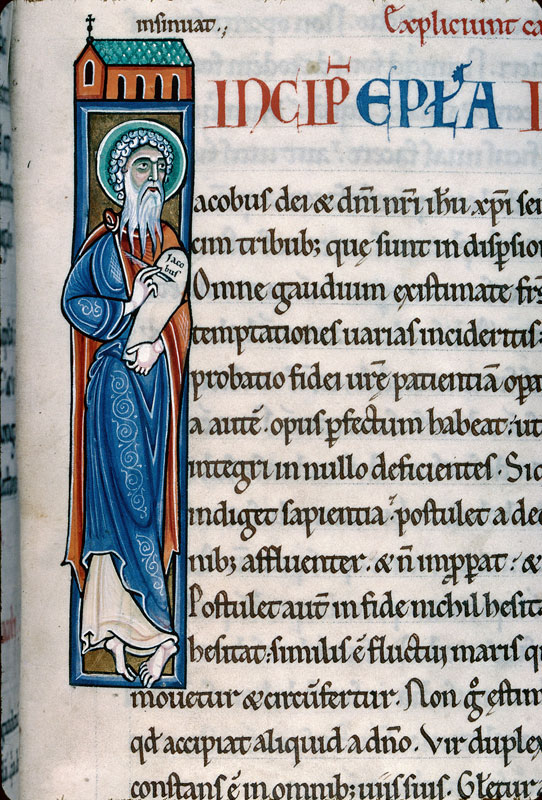 insinuat.;
Expliciunt ca
INCIP̄ EPŁA
Jaco
bus
acobus dei & dn̄i nr̄i ih̄u xp̄i
cim tribub; quę sunt in disp̄sion
Omne gaudium existimate fr̄s
temptationes uarias incideritis:
probatio fidei ur̄ę patientiā opa
a autē. opus p̄fectum habeat. ut
integri in nullo deficientes. Sic
indiget sapientia. postulet a deo
nib; affluenter. & n̄ imp̄perat. &
Postulet aut̄ in fide nichil hesita
hesitat: similis ē fluctuj maris q
mouetur & circū fertur. Non ḡ ęstim
qd̄ accipiat aliquid a dn̄o. Vir duplex
constans ē in omnib; uijs suis. Gl̄etur